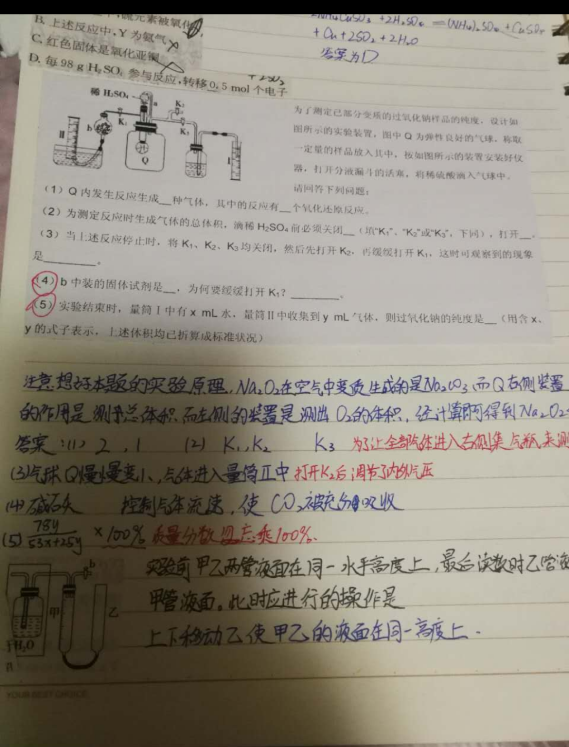 硫元素被氧化
B. 上述反应中,Y为氨气
C. 红色固体是氧化亚铜
D. 每 98 g H₂SO₄ 参与反应,转移 0.5 mol 个电子
+2H₂SO₄ = (NH₄)₂SO₄ + CuSO₄
+ Cu + 2SO₂ + 2H₂O
答案为D
稀 H₂SO₄
a
K₂
Ⅱ
b
K₁
K₃
Q
Ⅰ
为了测定已部分变质的过氧化钠样品的纯度,设计如
图所示的实验装置,图中 Q 为弹性良好的气球,称取
一定量的样品放入其中,按如图所示的装置安装好仪
器,打开分液漏斗的活塞,将稀硫酸滴入气球中。
请回答下列问题:
(1)Q 内发生反应生成__种气体,其中的反应有__个氧化还原反应。
(2)为测定反应时生成气体的总体积,滴稀 H₂SO₄ 前必须关闭__(填“K₁”、“K₂”或“K₃”,下同),打开__。
(3)当上述反应停止时,将 K₁、K₂、K₃ 均关闭,然后先打开 K₂,再缓缓打开 K₁,这时可观察到的现象
是________。
(4)b 中装的固体试剂是__,为何要缓缓打开 K₁?________。
(5)实验结束时,量筒Ⅰ中有 x mL 水,量筒Ⅱ中收集到 y mL 气体,则过氧化钠的纯度是__(用含 x、
y 的式子表示,上述体积均已折算成标准状况)
注意想好本题的实验原理,Na₂O₂在空气中变质生成的是Na₂CO₃,而Q右侧装置
的作用是测手总体积,而左侧的装置是测出O₂的体积,经计算即可得到Na₂O₂
答案:(1) 2, 1 (2) K₁, K₂ K₃ 为了让全部气体进入右侧集气瓶,来测
(3)气球Q慢慢变小,气体进入量筒Ⅱ中 打开K₂后调节了内外气压
(4)碱石灰 控制气体流速,使CO₂被充分吸收
(5) 78y/(53x+25y) ×100% 质量分数勿忘乘100%.
实验前甲乙两管液面在同一水平高度上,最后读数时乙管液
甲管液面。此时应进行的操作是
上下移动乙使甲乙的液面在同一高度上.
b
甲
乙
H₂O
YOUR BEST CHOICE